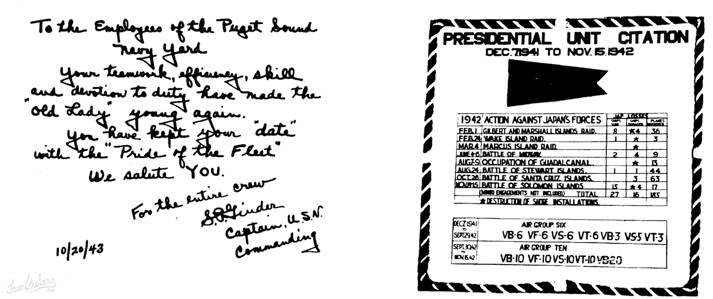 To the Employees of the Puget Sound
Navy Yard
Your teamwork, efficiency, skill
and devotion to duty have made the
"Old Lady" young again.
You have kept your "date"
with the "Pride of the Fleet"
We salute YOU.
For the entire crew
S.P. Ginder
Captain, U.S.N.
Commanding
10/20/43
PRESIDENTIAL UNIT CITATION
DEC. 7, 1941 TO NOV. 15 1942
1942 ACTION AGAINST JAPAN'S FORCES JAP LOSSES
FEB. 1 GILBERT AND MARSHALL ISLANDS RAID. 8 *4 36
FEB. 24 WAKE ISLAND RAID. 1 * 3
MAR. 4 MARCUS ISLAND RAID *
JUNE 4-6 BATTLE OF MIDWAY 2 4 9
AUG. 7-9 OCCUPATION OF GUADALCANAL. * 13
AUG. 24 BATTLE OF STEWART ISLANDS. 1 1 44
OCT. 26 BATTLE OF SANTA CRUZ ISLANDS. 3 63
NOV. 15 BATTLE OF SOLOMON ISLANDS 15 *4 17
(MINOR ENGAGEMENTS NOT INCLUDED) TOTAL 27 16 185
* DESTRUCTION OF SHORE INSTALLATIONS.
DEC. 7, 1941 AIR GROUP SIX
SEPT. 29, 42 VB-6 VF-6 VS-6 VT-6 VB-3 VS-5 VT-3
SEPT. 30, 42 AIR GROUP TEN
NOV. 15, 42 VB-10 VF-10 VS-10 VT-10 VB20